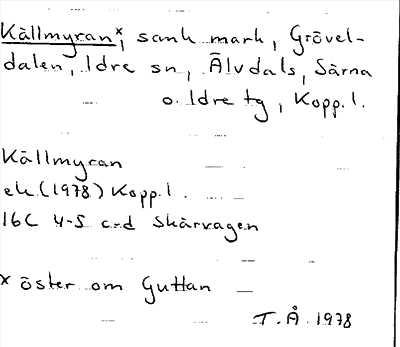 Källmyran,ˣ sank mark, Grövel-
dalen, Idre sn, Älvdals, Särna
o. Idre tg, Kopp. l.
Källmyran
ek. (1978) Kopp. l.
16C 4-5 c-d Skärvagen
x öster om Guttan
T.Å. 1978